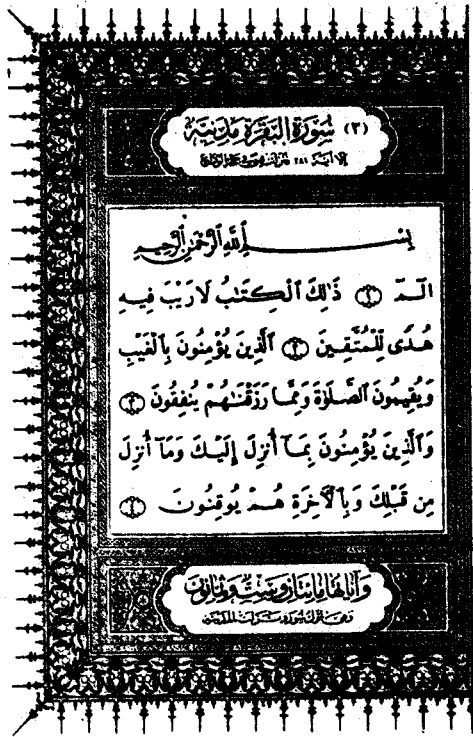 (٢) سُورَةُ الْبَقَرَةِ مَدَنِيَّة
إلا آية ٢٨١ فنزلت بمنى في حجة الوداع
بِسْمِ اللَّهِ الرَّحْمَٰنِ الرَّحِيمِ
الٓمٓ ١ ذَٰلِكَ الْكِتَٰبُ لَا رَيْبَ فِيهِ
هُدًى لِّلْمُتَّقِينَ ٢ الَّذِينَ يُؤْمِنُونَ بِالْغَيْبِ
وَيُقِيمُونَ الصَّلَوٰةَ وَمِمَّا رَزَقْنَٰهُمْ يُنفِقُونَ ٣
وَالَّذِينَ يُؤْمِنُونَ بِمَآ أُنزِلَ إِلَيْكَ وَمَآ أُنزِلَ
مِن قَبْلِكَ وَبِالْأٓخِرَةِ هُمْ يُوقِنُونَ ٤
وَآيَاتُهَا مِائتَانِ وَسِتٌّ وَثَمَانُونَ